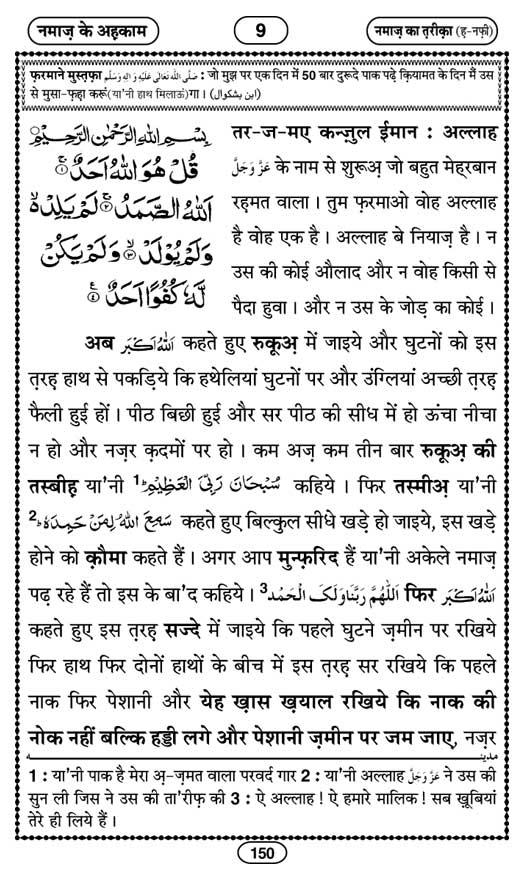 नमाज़ के अहकाम
9
नमाज़ का त़रीक़ा (ह़-नफ़ी)
फ़रमाने मुस्त़फ़ा صَلَّى اللهُ تَعَالٰى عَلَيْهِ وَاٰلِهٖ وَسَلَّم : जो मुझ पर एक दिन में 50 बार दुरूदे पाक पढ़े क़ियामत के दिन मैं उस
से मुसा-फ़हा करूं(या'नी हाथ मिलाऊं)गा । (ابن بشكوال)
بِسْمِ اللهِ الرَّحْمٰنِ الرَّحِيْمِ
قُلْ هُوَ اللهُ اَحَدٌ ۚ۱
اَللهُ الصَّمَدُ ۚ۲ لَمْ يَلِدْ ۙ۬
وَلَمْ يُوْلَدْ ۙ۳ وَلَمْ يَكُنْ
لَّهٗ كُفُوًا اَحَدٌ ۠۴
तर-ज-मए कन्ज़ुल ईमान : अल्लाह
عَزَّوَجَلَّ के नाम से शुरूअ़ जो बहुत मेह़रबान
रह़मत वाला । तुम फ़रमाओ वोह अल्लाह
है वोह एक है । अल्लाह बे नियाज़ है । न
उस की कोई औलाद और न वोह किसी से
पैदा हुवा । और न उस के जोड़ का कोई ।
अब اَللهُ اَكْبَر कहते हुए रुकूअ़ में जाइये और घुटनों को इस
त़रह़ हाथ से पकड़िये कि हथेलियां घुटनों पर और उंग्लियां अच्छी त़रह़
फैली हुई हों । पीठ बिछी हुई और सर पीठ की सीध में हो ऊंचा नीचा
न हो और नज़र क़दमों पर हो । कम अज़ कम तीन बार रुकूअ़ की
तस्बीह़ या'नी سُبْحَانَ رَبِّيَ الْعَظِيْم 1 कहिये । फिर तस्मीअ़ या'नी
سَمِعَ اللهُ لِمَنْ حَمِدَهٗ 2 कहते हुए बिल्कुल सीधे खड़े हो जाइये, इस खड़े
होने को क़ौमा कहते हैं । अगर आप मुन्फ़रिद हैं या'नी अकेले नमाज़
पढ़ रहे हैं तो इस के बा'द कहिये । اَللّٰهُمَّ رَبَّنَا وَلَكَ الْحَمْد 3 फिर اَللهُ اَكْبَر
कहते हुए इस त़रह़ सज्दे में जाइये कि पहले घुटने ज़मीन पर रखिये
फिर हाथ फिर दोनों हाथों के बीच में इस त़रह़ सर रखिये कि पहले
नाक फिर पेशानी और येह ख़ास ख़याल रखिये कि नाक की
नोक नहीं बल्कि हड्डी लगे और पेशानी ज़मीन पर जम जाए, नज़र
مدينه
1 : या'नी पाक है मेरा अ़-ज़मत वाला परवर्द गार 2 : या'नी अल्लाह عَزَّوَجَلَّ ने उस की
सुन ली जिस ने उस की ता'रीफ़ की 3 : ऐ अल्लाह ! ऐ हमारे मालिक ! सब ख़ूबियां
तेरे ही लिये हैं ।
150